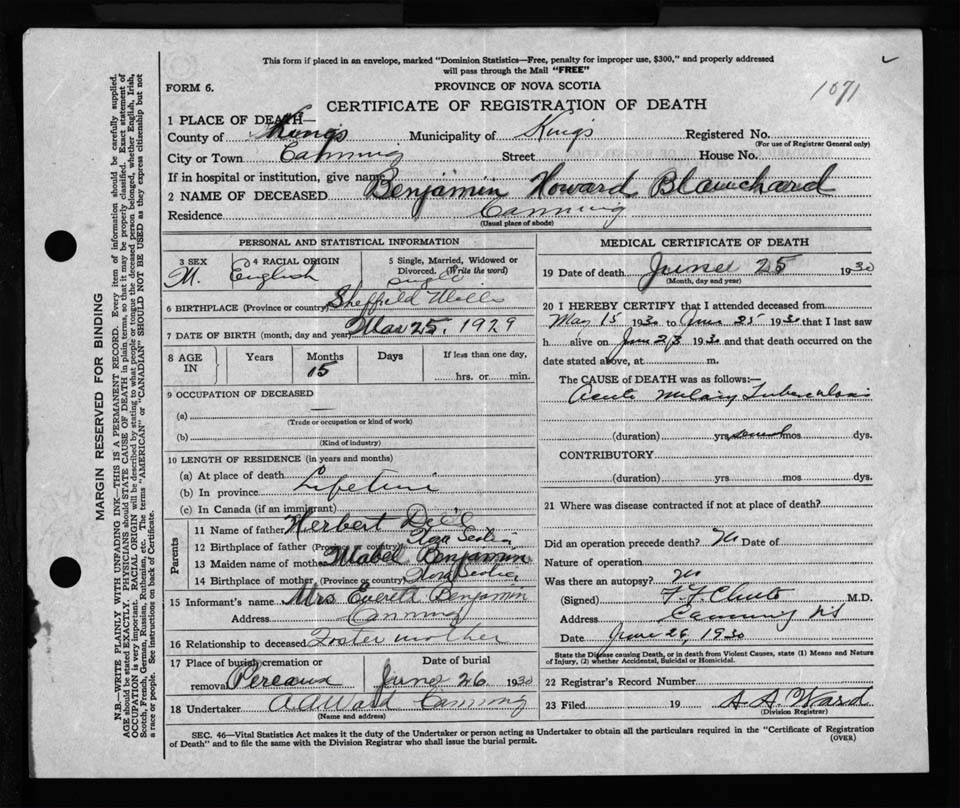 This form if placed in an envelope, marked "Dominion Statistics—Free, penalty for improper use, $300," and properly addressed
will pass through the Mail "FREE"
FORM 6.
PROVINCE OF NOVA SCOTIA
1071
CERTIFICATE OF REGISTRATION OF DEATH
1 PLACE OF DEATH—
County of Kings Municipality of Kings Registered No.
(For use of Registrar General only)
City or Town Canning Street House No.
If in hospital or institution, give name
2 NAME OF DECEASED Benjamin Howard Blanchard
Residence Canning
(Usual place of abode)
PERSONAL AND STATISTICAL INFORMATION
3 SEX 4 RACIAL ORIGIN 5 Single, Married, Widowed or
Divorced. (Write the word)
M. English Single
6 BIRTHPLACE (Province or country) Sheffield Mills
7 DATE OF BIRTH (month, day and year) Mar 25, 1929
8 AGE IN Years Months Days If less than one day,
15 hrs. or min.
9 OCCUPATION OF DECEASED
(a)
(Trade or occupation or kind of work)
(b)
(Kind of industry)
10 LENGTH OF RESIDENCE (in years and months)
(a) At place of death
(b) In province Lifetime
(c) In Canada (if an immigrant)
Parents
11 Name of father Herbert
12 Birthplace of father (Province or country) Nova Scotia
13 Maiden name of mother Mabel Benjamin
14 Birthplace of mother (Province or country) Nova Scotia
15 Informant's name Mrs Everett Benjamin
Address Canning
16 Relationship to deceased Foster mother
17 Place of burial, cremation or Date of burial
removal Pereaux June 26 1930
18 Undertaker A A Ward Canning
(Name and address)
MEDICAL CERTIFICATE OF DEATH
19 Date of death June 25 1930
(Month, day and year)
20 I HEREBY CERTIFY that I attended deceased from
May 15 1930 to June 25 1930 that I last saw
h alive on June 23 1930 and that death occurred on the
date stated above, at m.
The CAUSE of DEATH was as follows:—
Acute Miliary Tuberculosis
(duration) yrs. mos dys.
CONTRIBUTORY
(duration) yrs mos dys.
21 Where was disease contracted if not at place of death?
Did an operation precede death? No Date of
Nature of operation
Was there an autopsy? no
(Signed) F. F. Chute M.D.
Address Canning NS
Date June 26, 1930
State the Disease causing Death, or in death from Violent Causes, state (1) Means and Nature
of Injury, (2) whether Accidental, Suicidal or Homicidal.
22 Registrar's Record Number
23 Filed 19 A. A. Ward
(Division Registrar)
SEC. 46—Vital Statistics Act makes it the duty of the Undertaker or person acting as Undertaker to obtain all the particulars required in the "Certificate of Registration
of Death" and to file the same with the Division Registrar who shall issue the burial permit.
(OVER)
MARGIN RESERVED FOR BINDING
N.B.—WRITE PLAINLY WITH UNFADING INK—THIS IS A PERMANENT RECORD. Every item of information should be carefully supplied.
AGE should be stated EXACTLY. PHYSICIANS should STATE CAUSE OF DEATH in plain terms, so that it may be properly classified. Exact statement of
OCCUPATION is very important. RACIAL ORIGIN will be described by stating to what people or tongue the deceased person belonged, whether English, Irish,
Scotch, French, German, Russian, Ruthenian, etc. The terms "AMERICAN" or "CANADIAN" SHOULD NOT BE USED as they express citizenship but not
a race or people. See instructions on back of Certificate.